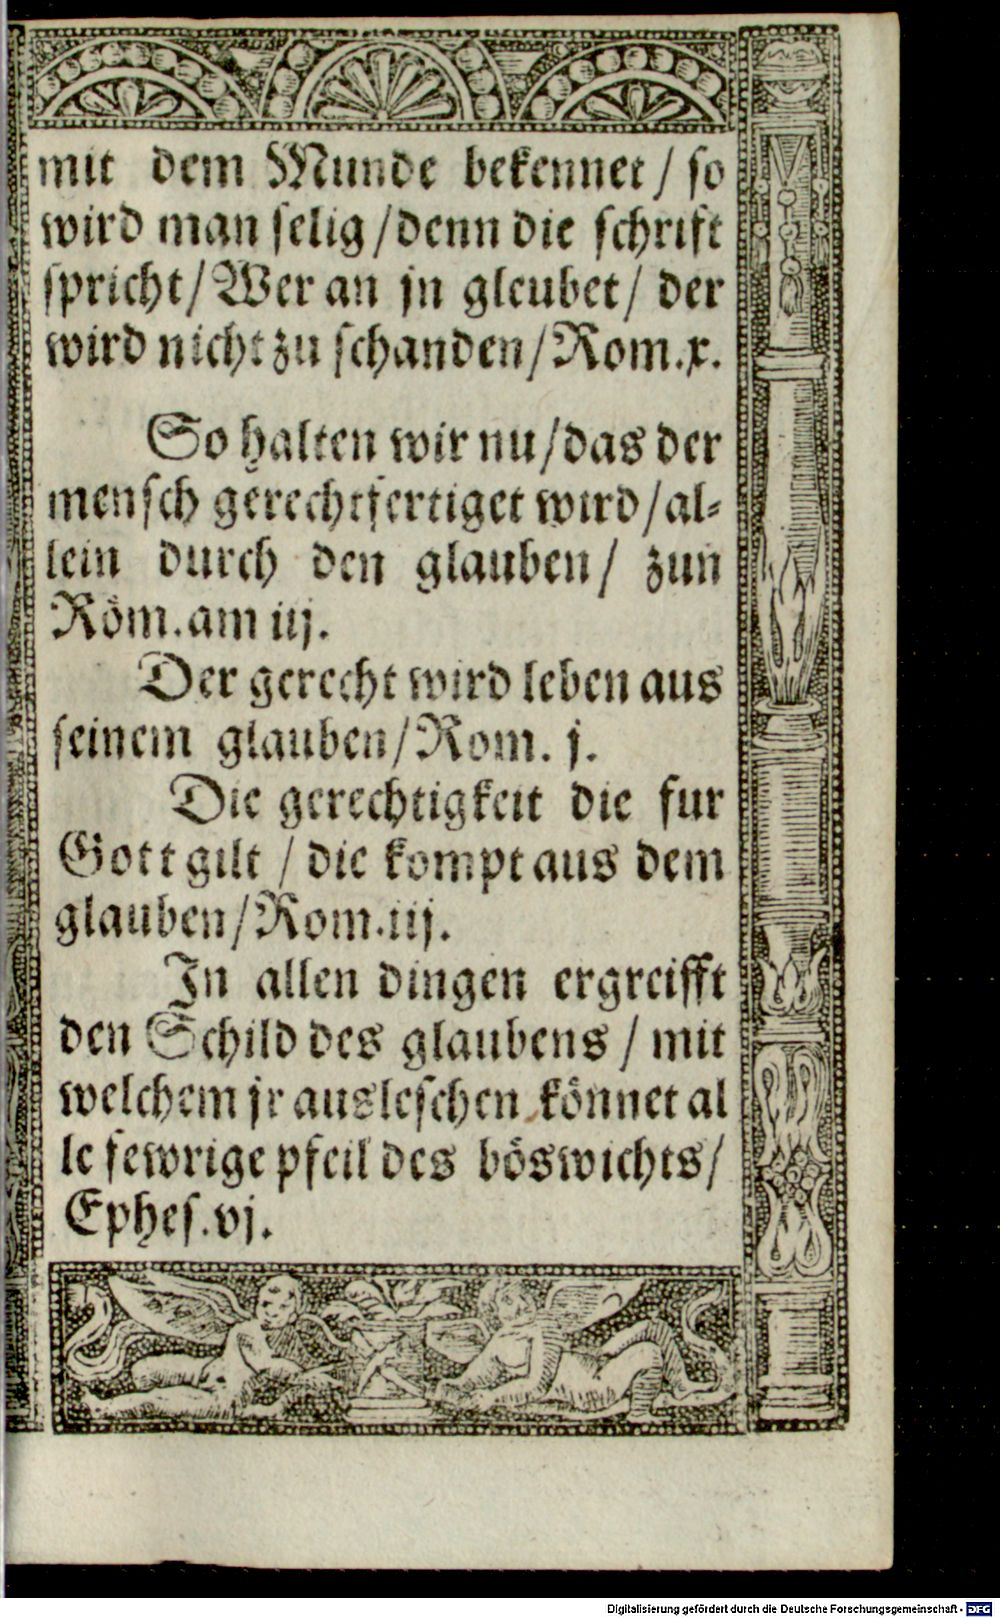 mit dem Munde bekennet / so
wird man selig / denn die schrifft
spricht / Wer an jn gleubet / der
wird nicht zu schanden / Rom. x.
So halten wir nu / das der
mensch gerechtfertiget wird / al-
lein durch den glauben / zun
Röm. am iij.
Der gerecht wird leben aus
seinem glauben / Rom. j.
Die gerechtigkeit die fur
Gott gilt / die kompt aus dem
glauben / Rom. iij.
In allen dingen ergreifft
den Schild des glaubens / mit
welchem jr ausleschen könnet al
le fewrige pfeil des böswichts /
Ephes. vj.
Digitalisierung gefördert durch die Deutsche Forschungsgemeinschaft - DFG